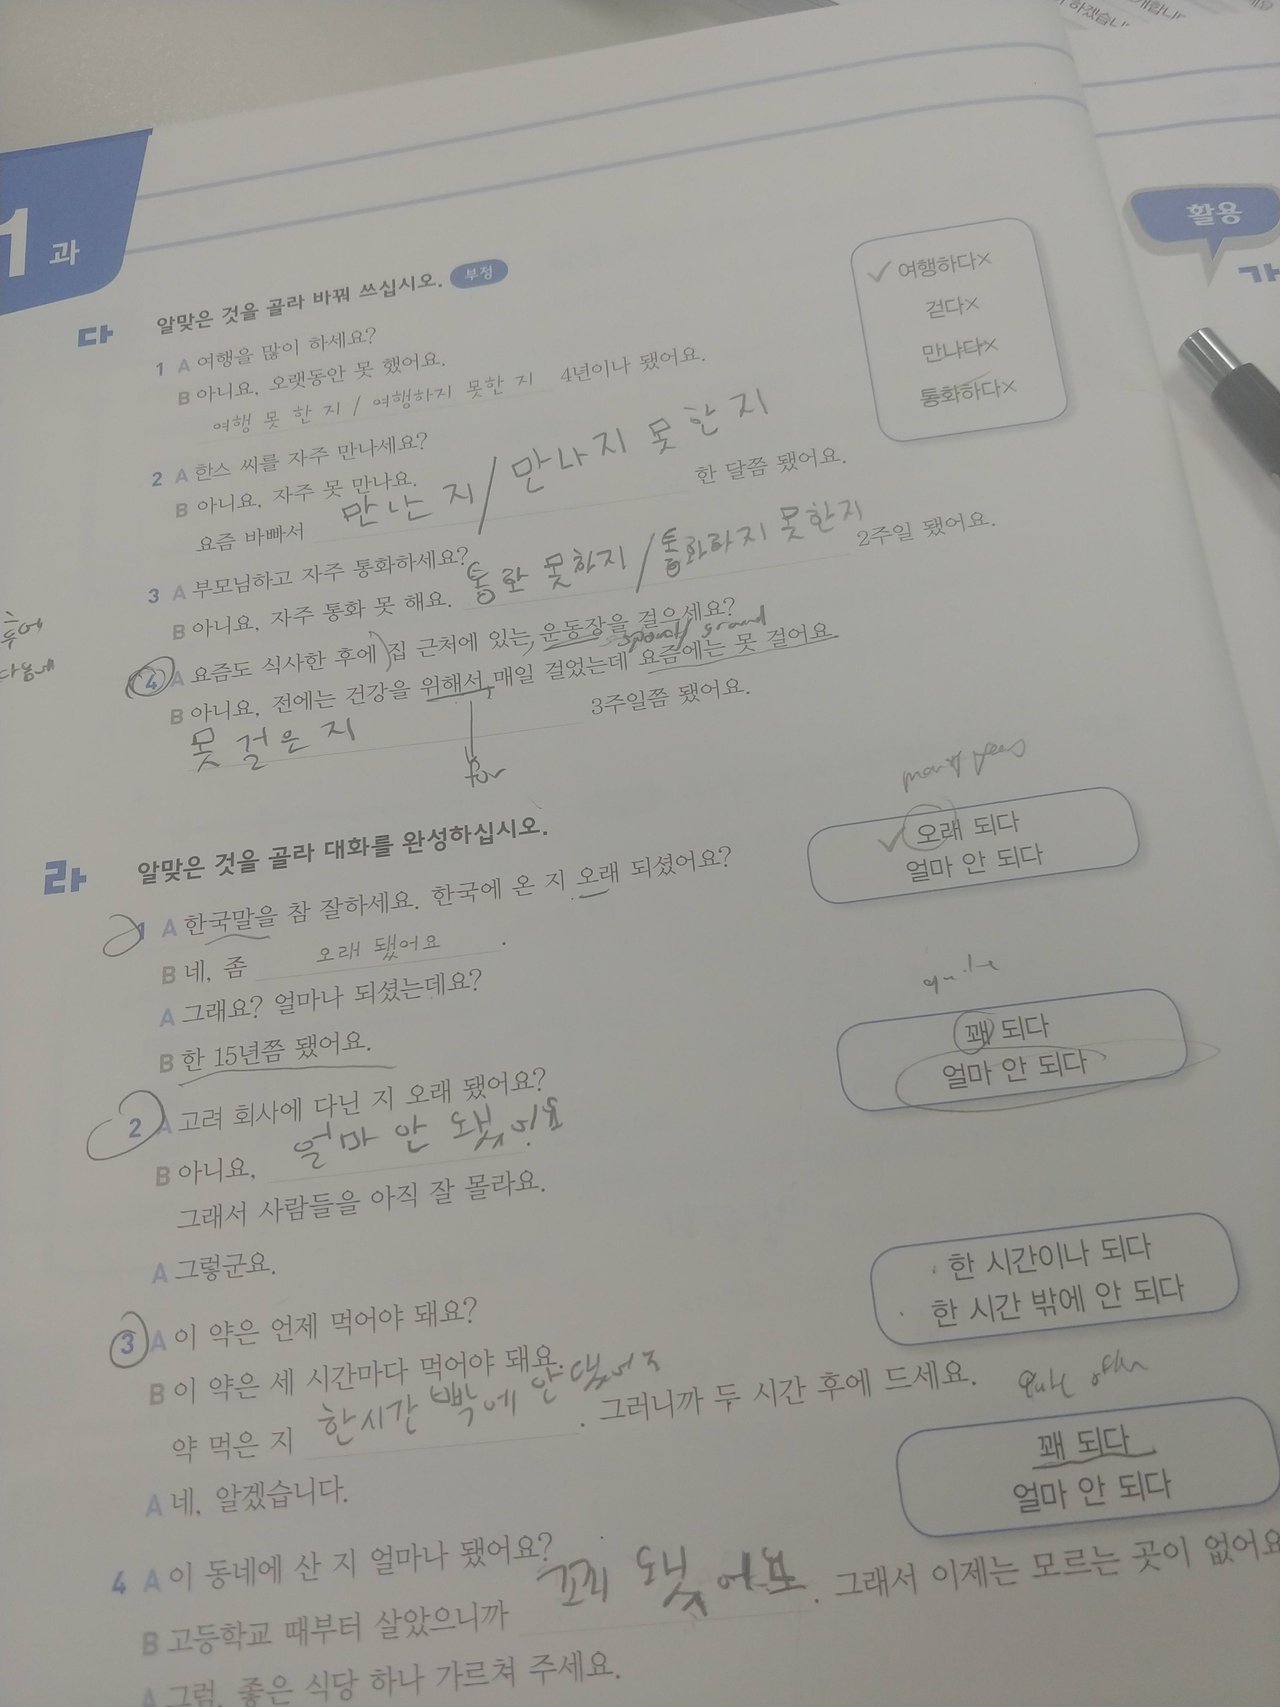 1과
다 알맞은 것을 골라 바꿔 쓰십시오. 부정
1 A 여행을 많이 하세요?
B 아니요, 오랫동안 못 했어요.
여행 못 한 지 / 여행하지 못한 지 4년이나 됐어요.
여행하다×
걷다×
만나다×
통화하다×
2 A 한스 씨를 자주 만나세요?
B 아니요, 자주 못 만나요.
요즘 바빠서 만난 지 / 만나지 못한지 한 달쯤 됐어요.
3 A 부모님하고 자주 통화하세요?
B 아니요, 자주 통화 못 해요. 통화 못하지 / 통화하지 못한지 2주일 됐어요.
4 A 요즘도 식사한 후에 집 근처에 있는 운동장을 걸으세요?
ground
B 아니요, 전에는 건강을 위해서 매일 걸었는데 요즘에는 못 걸어요
못 걸은 지 3주일쯤 됐어요.
for
라 알맞은 것을 골라 대화를 완성하십시오.
오래 되다
얼마 안 되다
1 A 한국말을 참 잘하세요. 한국에 온 지 오래 되셨어요?
B 네, 좀 오래 됐어요.
A 그래요? 얼마나 되셨는데요?
B 한 15년쯤 됐어요.
quite
꽤 되다
얼마 안 되다
2 A 고려 회사에 다닌 지 오래 됐어요?
B 아니요, 얼마 안 됐어요
그래서 사람들을 아직 잘 몰라요.
A 그렇군요.
한 시간이나 되다
한 시간 밖에 안 되다
3 A 이 약은 언제 먹어야 돼요?
B 이 약은 세 시간마다 먹어야 돼요.
약 먹은 지 한시간 빡에 안 . 그러니까 두 시간 후에 드세요.
A 네, 알겠습니다.
꽤 되다
얼마 안 되다
4 A 이 동네에 산 지 얼마나 됐어요?
B 고등학교 때부터 살았으니까 됐어요. 그래서 이제는 모르는 곳이 없어요
A 그럼, 좋은 식당 하나 가르쳐 주세요.
활용